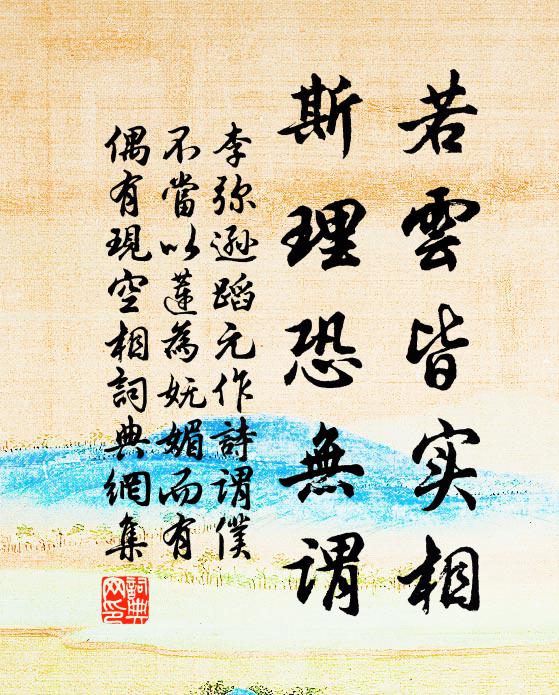 若雲皆实相
斯理恐無謂
李弥遜蹈元作詩謂僕
不當以蓮為妩媚而有
偶有現空相詞典網集
詞典
网印